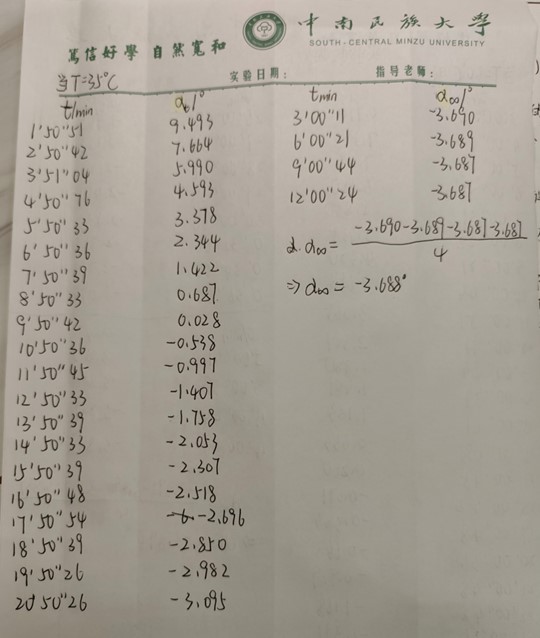 中南民族大学
SOUTH-CENTRAL MINZU UNIVERSITY
篤信好學 自然寬和
当T=35°C 实验日期： 指导老师：
t/min αt/° tmin α∞/°
1'50"51 9.493 3'00"11 -3.690
2'50"42 7.664 6'00"21 -3.689
3'51"04 5.990 9'00"44 -3.687
4'50"76 4.593 12'00"24 -3.687
5'50"33 3.378
6'50"36 2.344
7'50"39 1.422
8'50"33 0.687
9'50"42 0.028
10'50"36 -0.538
11'50"45 -0.997
12'50"33 -1.407
13'50"39 -1.758
14'50"33 -2.053
15'50"39 -2.307
16'50"48 -2.518
17'50"54 -2.696
18'50"39 -2.850
19'50"26 -2.982
20'50"26 -3.095
-3.690-3.689-3.687-3.687
α∞ =
4
⇒ α∞ = -3.688°